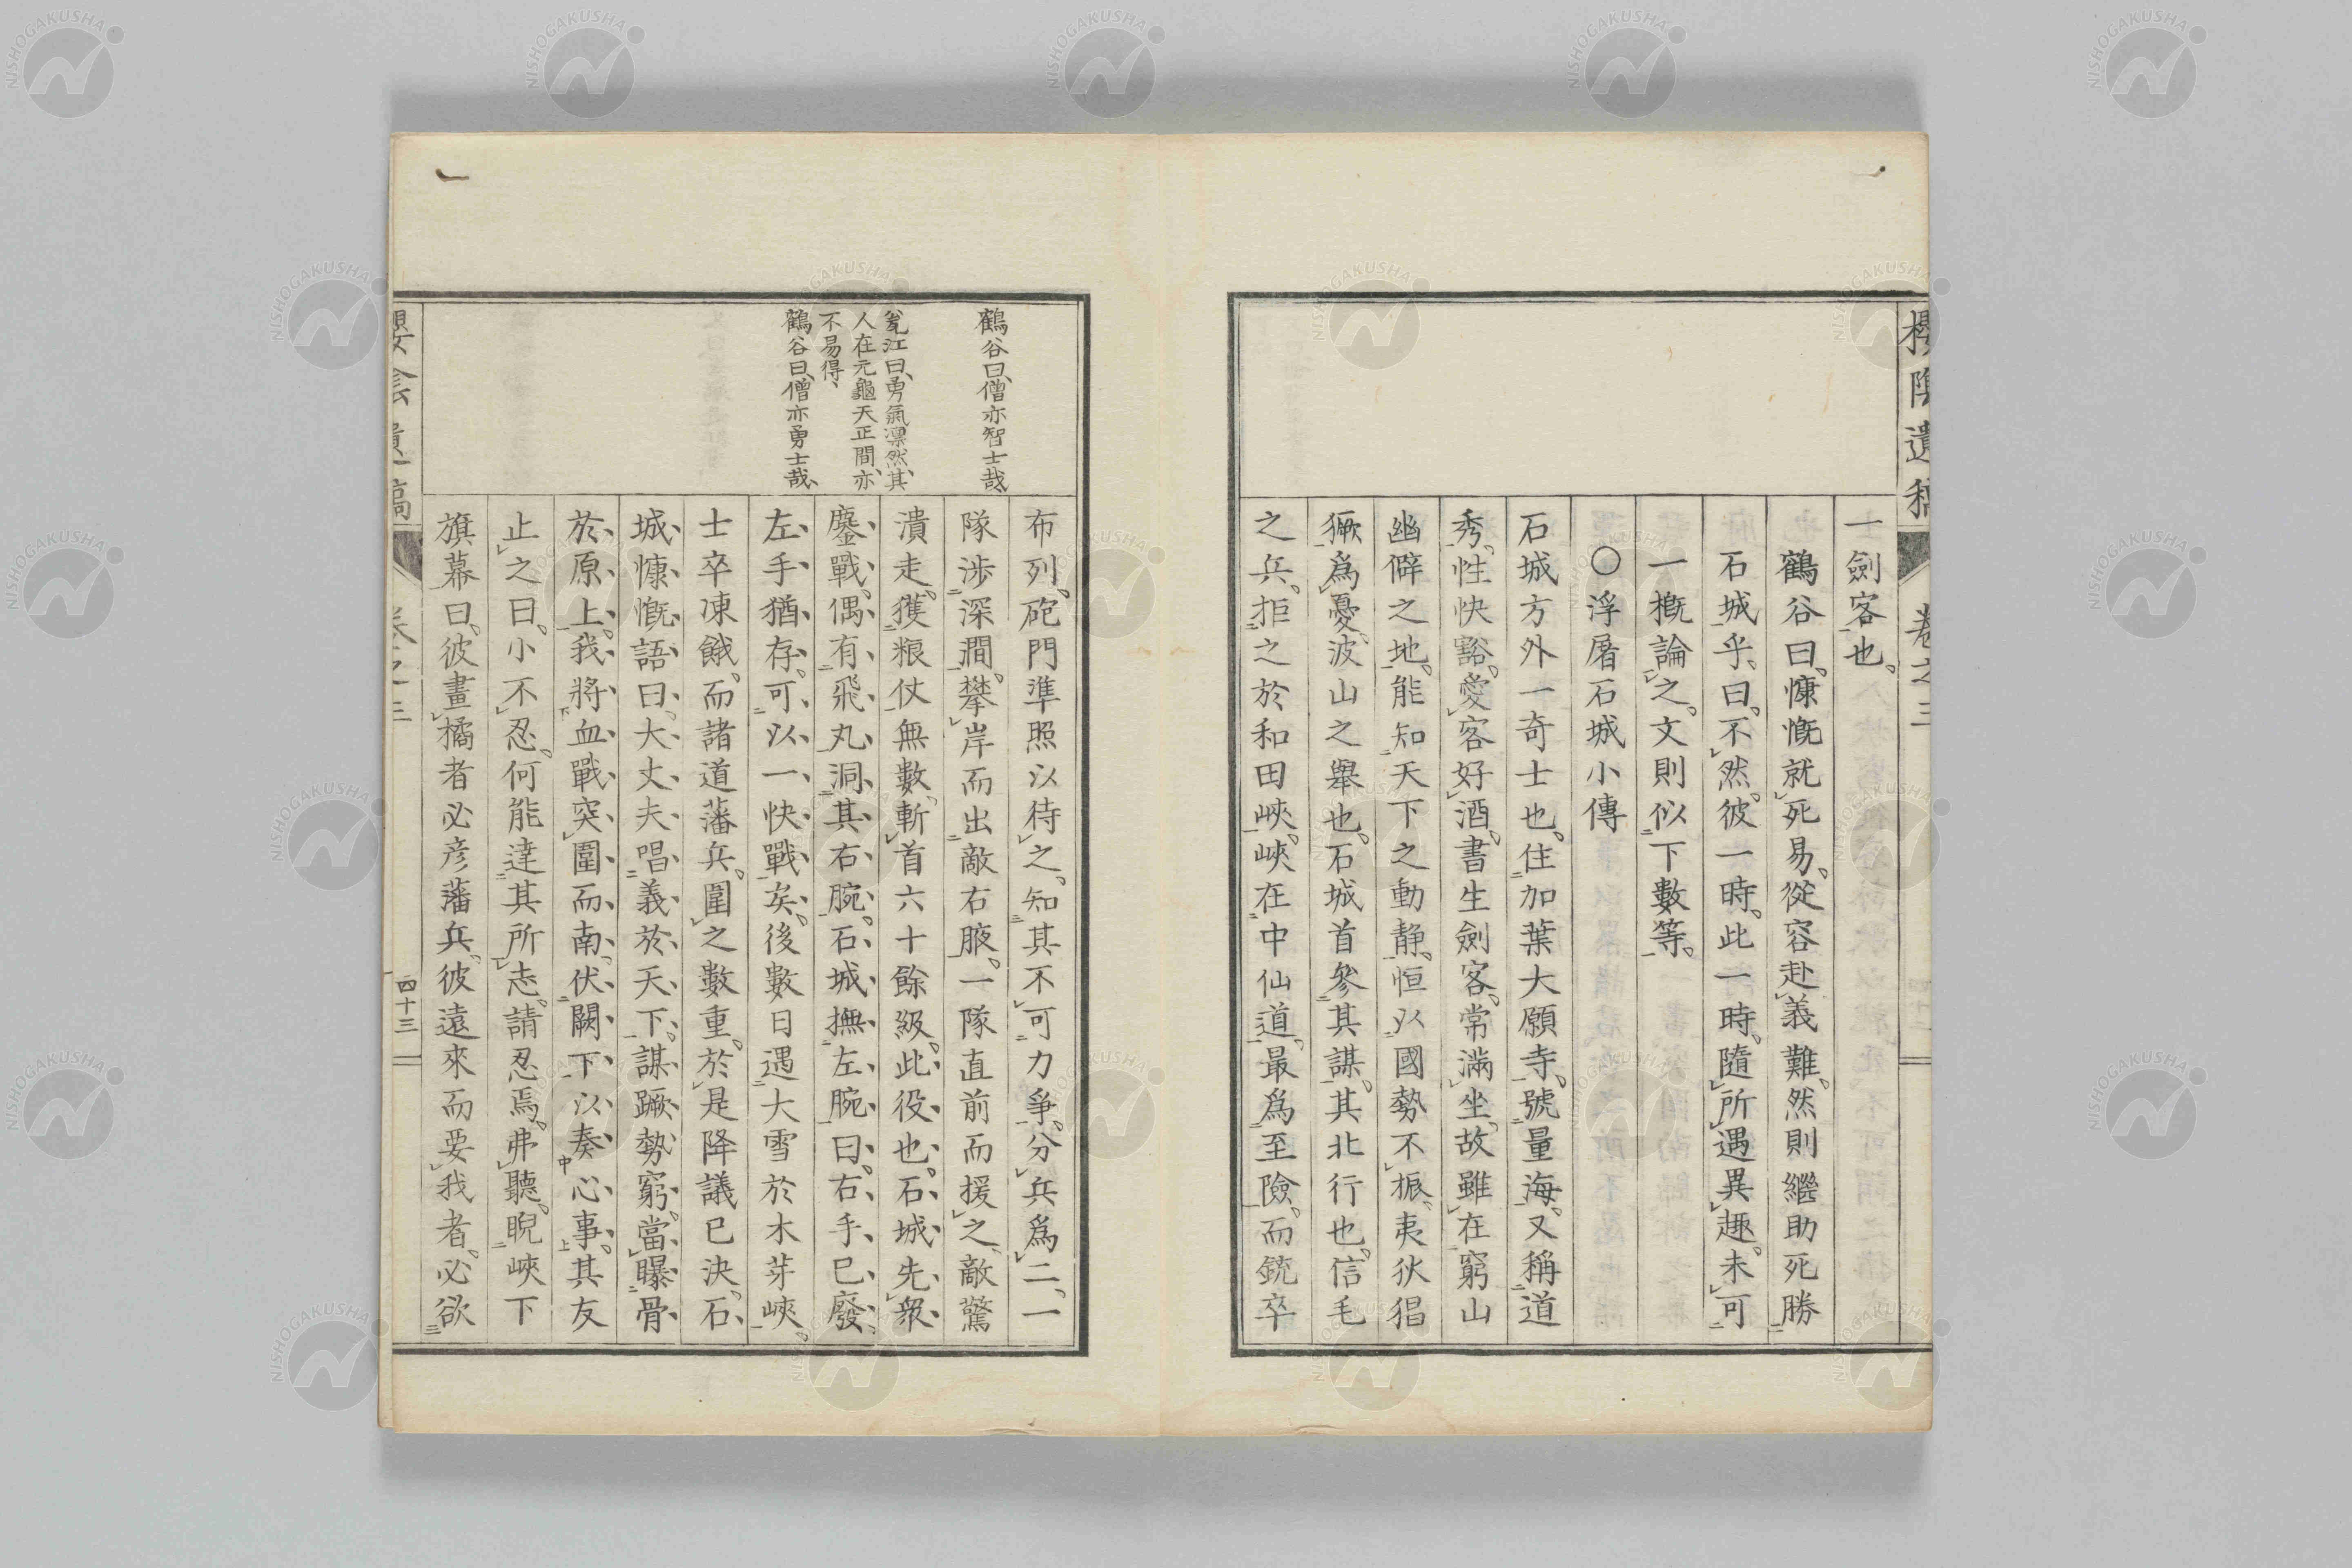 櫻陰遺稿 卷之三
一劍客也。
鶴谷曰。慷慨就死易。從容赴義難。然則繼助死勝
石城乎。曰。不然。彼一時。此一時。隨所遇異趣。未可
一概論之。文則似下數等。
〇浮屠石城小傳
石城方外一奇士也。住加葉大願寺。號量海。又稱道
秀。性快豁。愛客好酒。書生劍客。常滿坐。故雖在窮山
幽僻之地。能知天下之動靜。恒以國勢不振、夷狄猖
獗爲憂。波山之舉也。石城首參其謀。其北行也。信毛
之兵。拒之於和田峽。峽在中仙道。最爲至險。而銃卒
鶴谷曰、僧亦智士哉、
瓮江曰、勇氣凛然、其
人在元龜天正間、亦
不易得、
鶴谷曰、僧亦勇士哉、
布列。砲門準照以待之。知其不可力爭。分兵爲二、一
隊渉深澗。攀岸而出敵右腋。一隊直前而援之、敵驚
潰走。獲粮仗無數、斬首六十餘級。此役也。石城先衆
鏖戰。偶有飛丸。洞其右腕。石城撫左腕曰。右手已廢、
左手猶存。可以一快戰矣。後數日遇大雪於木芽峽。
士卒凍餓。而諸道藩兵。圍之數重。於是降議已決。石
城慷慨語曰。大丈夫唱義於天下。謀蹶勢窮。當曝骨
於原上。我將血戰突圍而南。伏闕下以奏心事。其友
止之曰。小不忍。何能達其所志。請忍焉。弗聽。睨峽下
旗幕曰。彼畫橘者必彦藩兵。彼遠來而要我者。必欲
櫻陰遺稿 卷之三 四十三
NISHOGAKUSHA